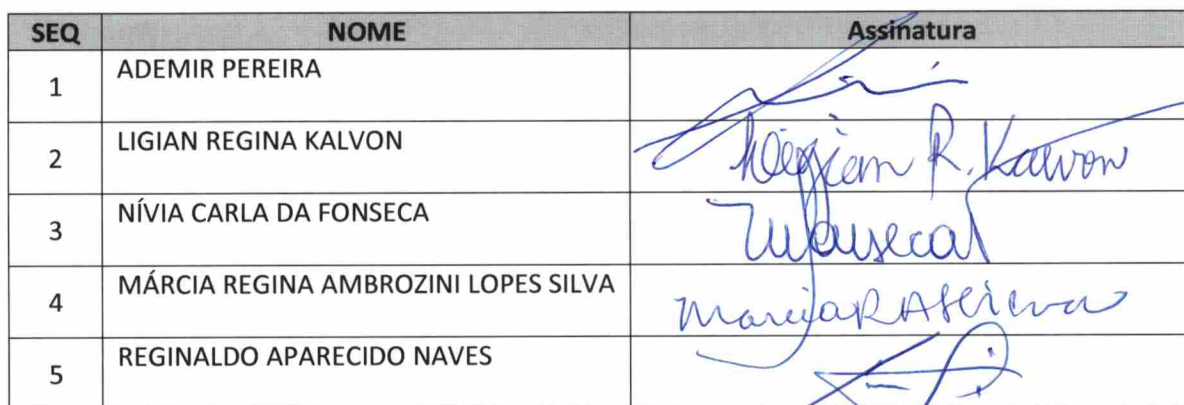 SEQ NOME Assinatura
1 ADEMIR PEREIRA
2 LIGIAN REGINA KALVON Ligian R. Kalvon
3 NÍVIA CARLA DA FONSECA
4 MÁRCIA REGINA AMBROZINI LOPES SILVA
5 REGINALDO APARECIDO NAVES